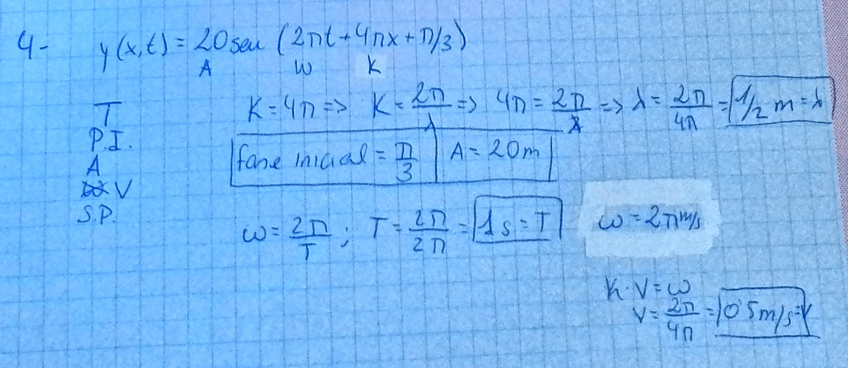 4- y(x,t) = 20 sen (2πt + 4πx + π/3)
A W K
T
P.I.
A
V
S.P.
K = 4π => K = 2π/λ => 4π = 2π/λ => λ = 2π/4π = 1/2 m = λ
fase inicial = π/3 A = 20m
ω = 2π/T ; T = 2π/2π = 1s = T ω = 2π m/s
K·V = ω
V = 2π/4π = 0'5m/s = V